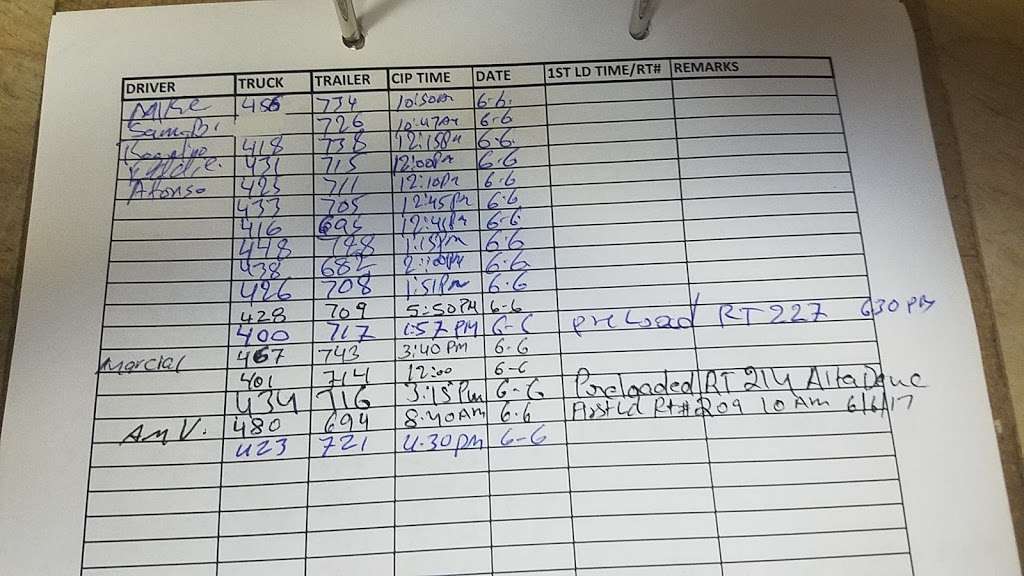 DRIVER TRUCK TRAILER CIP TIME DATE 1ST LD TIME/RT# REMARKS
Mike 456 734 10:30am 6-6.
Sam B. 726 10:47AM 6-6
418 738 12:15PM 6-6.
431 715 12:00PM 6-6
Afonso 425 711 12:10PM 6-6
433 705 12:45PM 6-6
416 695 6-6
448 728 1:15PM 6-6
438 682 6-6
426 708 1:51PM 6-6
428 709 5:50PM 6-6
400 717 1:57 PM 6-6 preload RT 227 630 PM
Marcial 467 743 3:40 PM 6-6
401 714 12:00 6-6
434 716 3:15PM 6-6 Preloaded RT 214
Am V. 480 694 8:40Am 6-6 Rt# 209 10 Am 6/6/17
423 721 4:30pm 6-6